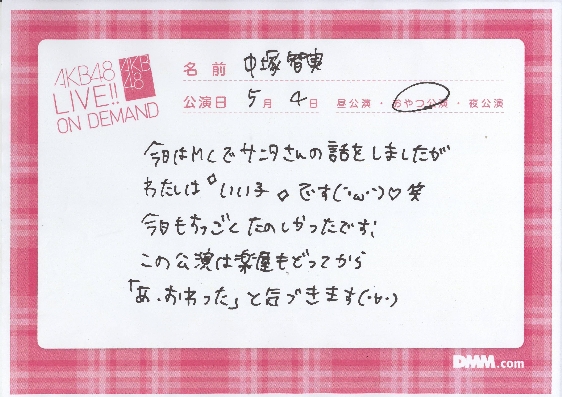 AKB48
LIVE!!
ON DEMAND
AKB
48
名前 中塚智実
公演日 5月 4日 昼公演・おやつ公演・夜公演
今日はMCでサンタさんの話をしましたが
わたしは°いい子。です(・ω・)♡笑
今日もすっごくたのしかったです!
この公演は楽屋もどってから
「あ、おわった」と気づきます(・v・)
DMM.com